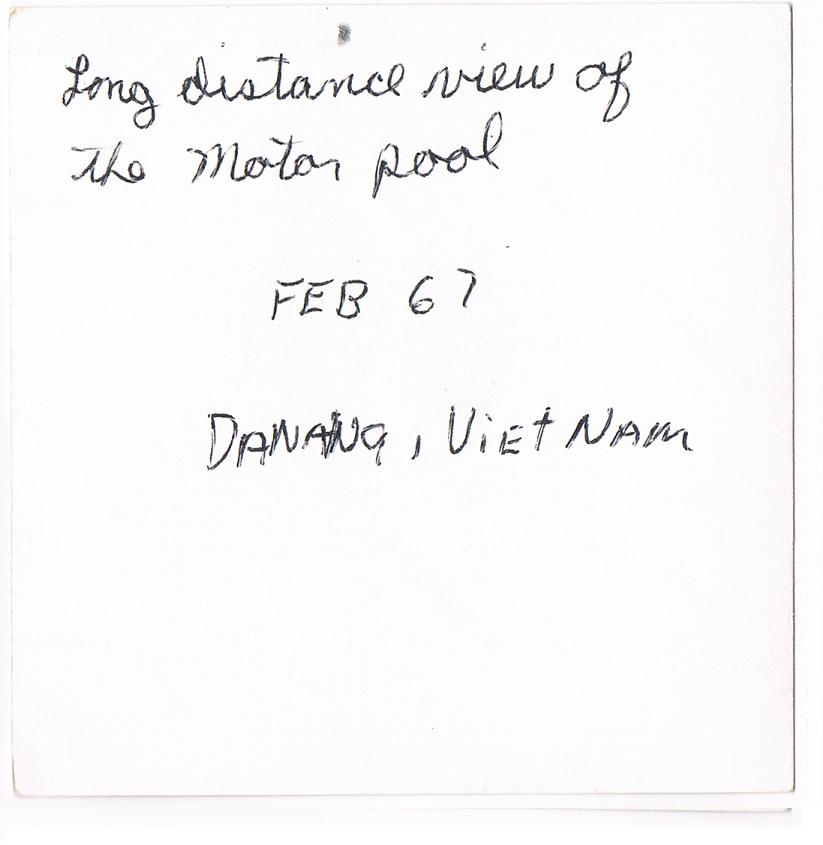 Long distance view of
the Motor pool
FEB 67
DANANG, ViEt NAM